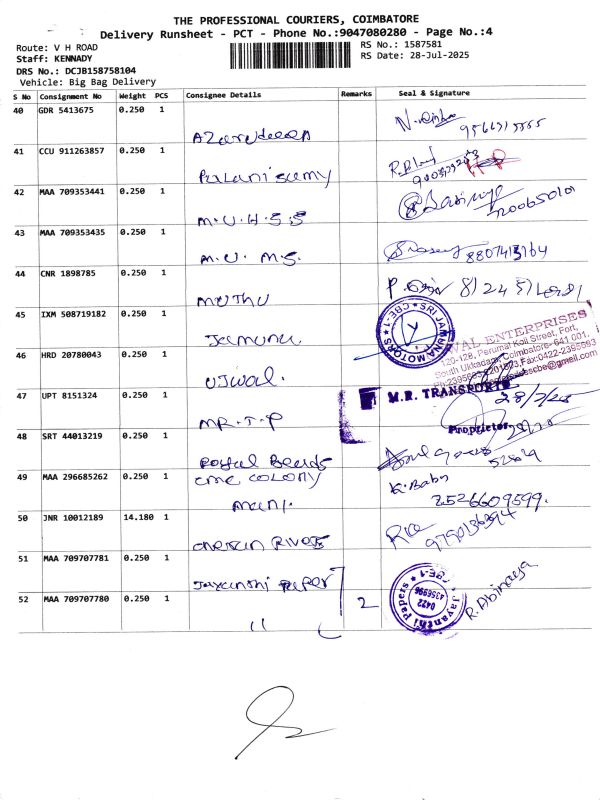 THE PROFESSIONAL COURIERS, COIMBATORE
Delivery Runsheet - PCT - Phone No.:9047080280 - Page No.:4
Route: V H ROAD
Staff: KENNADY
DRS No.: DCJB158758104
Vehicle: Big Bag Delivery
RS No.: 1587581
RS Date: 28-Jul-2025
S No Consignment No Weight PCS Consignee Details Remarks Seal & Signature
40 GDR 5413675 0.250 1
Azarudeen
41 CCU 911263857 0.250 1
Palanisamy
42 MAA 709353441 0.250 1
M.U.H.S.S
43 MAA 709353435 0.250 1
M.U. M.S. 8807413164
44 CNR 1898785 0.250 1
MUTHU
45 IXM 508719182 0.250 1
Jamuna
SRI JAMUNA MOTORS CBE-1
46 HRD 20780043 0.250 1
UJWAL.
UJWAL ENTERPRISES
120-128, Perumal Koil Street, Fort,
South Ukkadam, Coimbatore- 641 001.
47 UPT 8151324 0.250 1
MR.T.P
M.R. TRANSPORTS
28/7/25
Proprietor
48 SRT 44013219 0.250 1
Royal Beards
49 MAA 296685262 0.250 1
CMC COLONY
Mani.
K. Babu
50 JNR 10012189 14.180 1
51 MAA 709707781 0.250 1
Jayanthi Paper
52 MAA 709707780 0.250 1
11 2
Jayanthi Papers CBE-1
0422
4356996
R. Abinaya